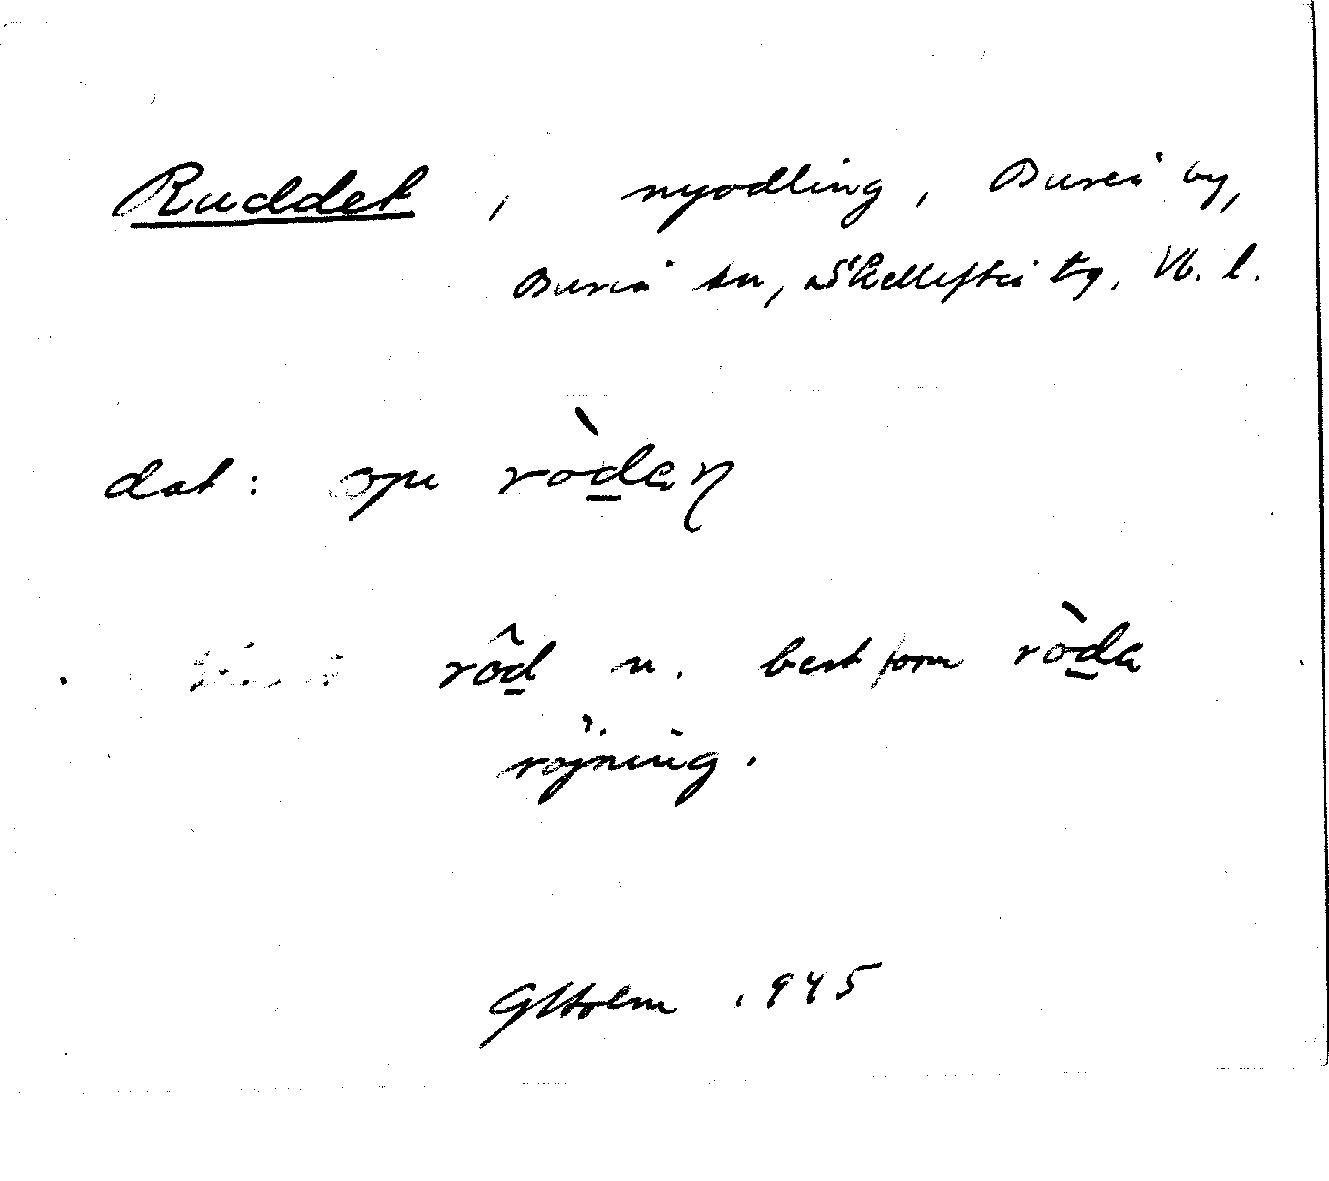 Ruddet, nyodling, Bureå by,
Bureå sn, Skellefteå tg, Vb. l.
dat: opu ròd̲aɳ
rôd̲ n. best form ròd̲a
röjning.
GHolm 1945